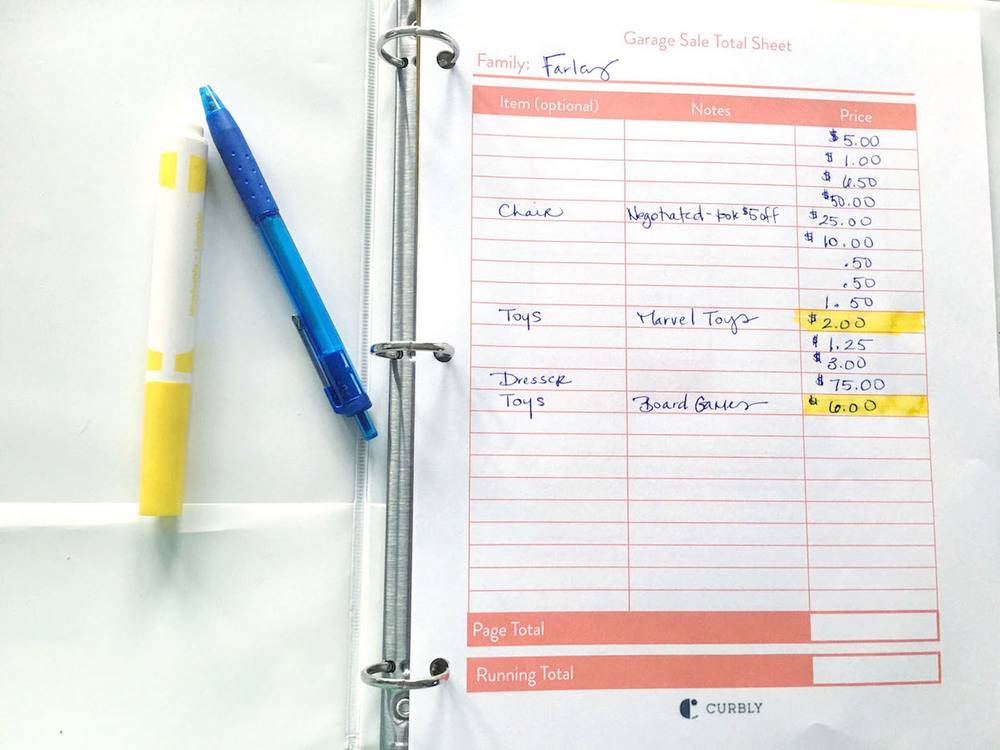 Garage Sale Total Sheet
Family: Farley
Item (optional) Notes Price
$5.00
$1.00
$6.50
$50.00
Chair Negotiated - took $5 off $25.00
$10.00
.50
.50
1.50
Toys Marvel Toys $2.00
$1.25
$3.00
Dresser $75.00
Toys Board Games $6.00
Page Total
Running Total
CURBLY